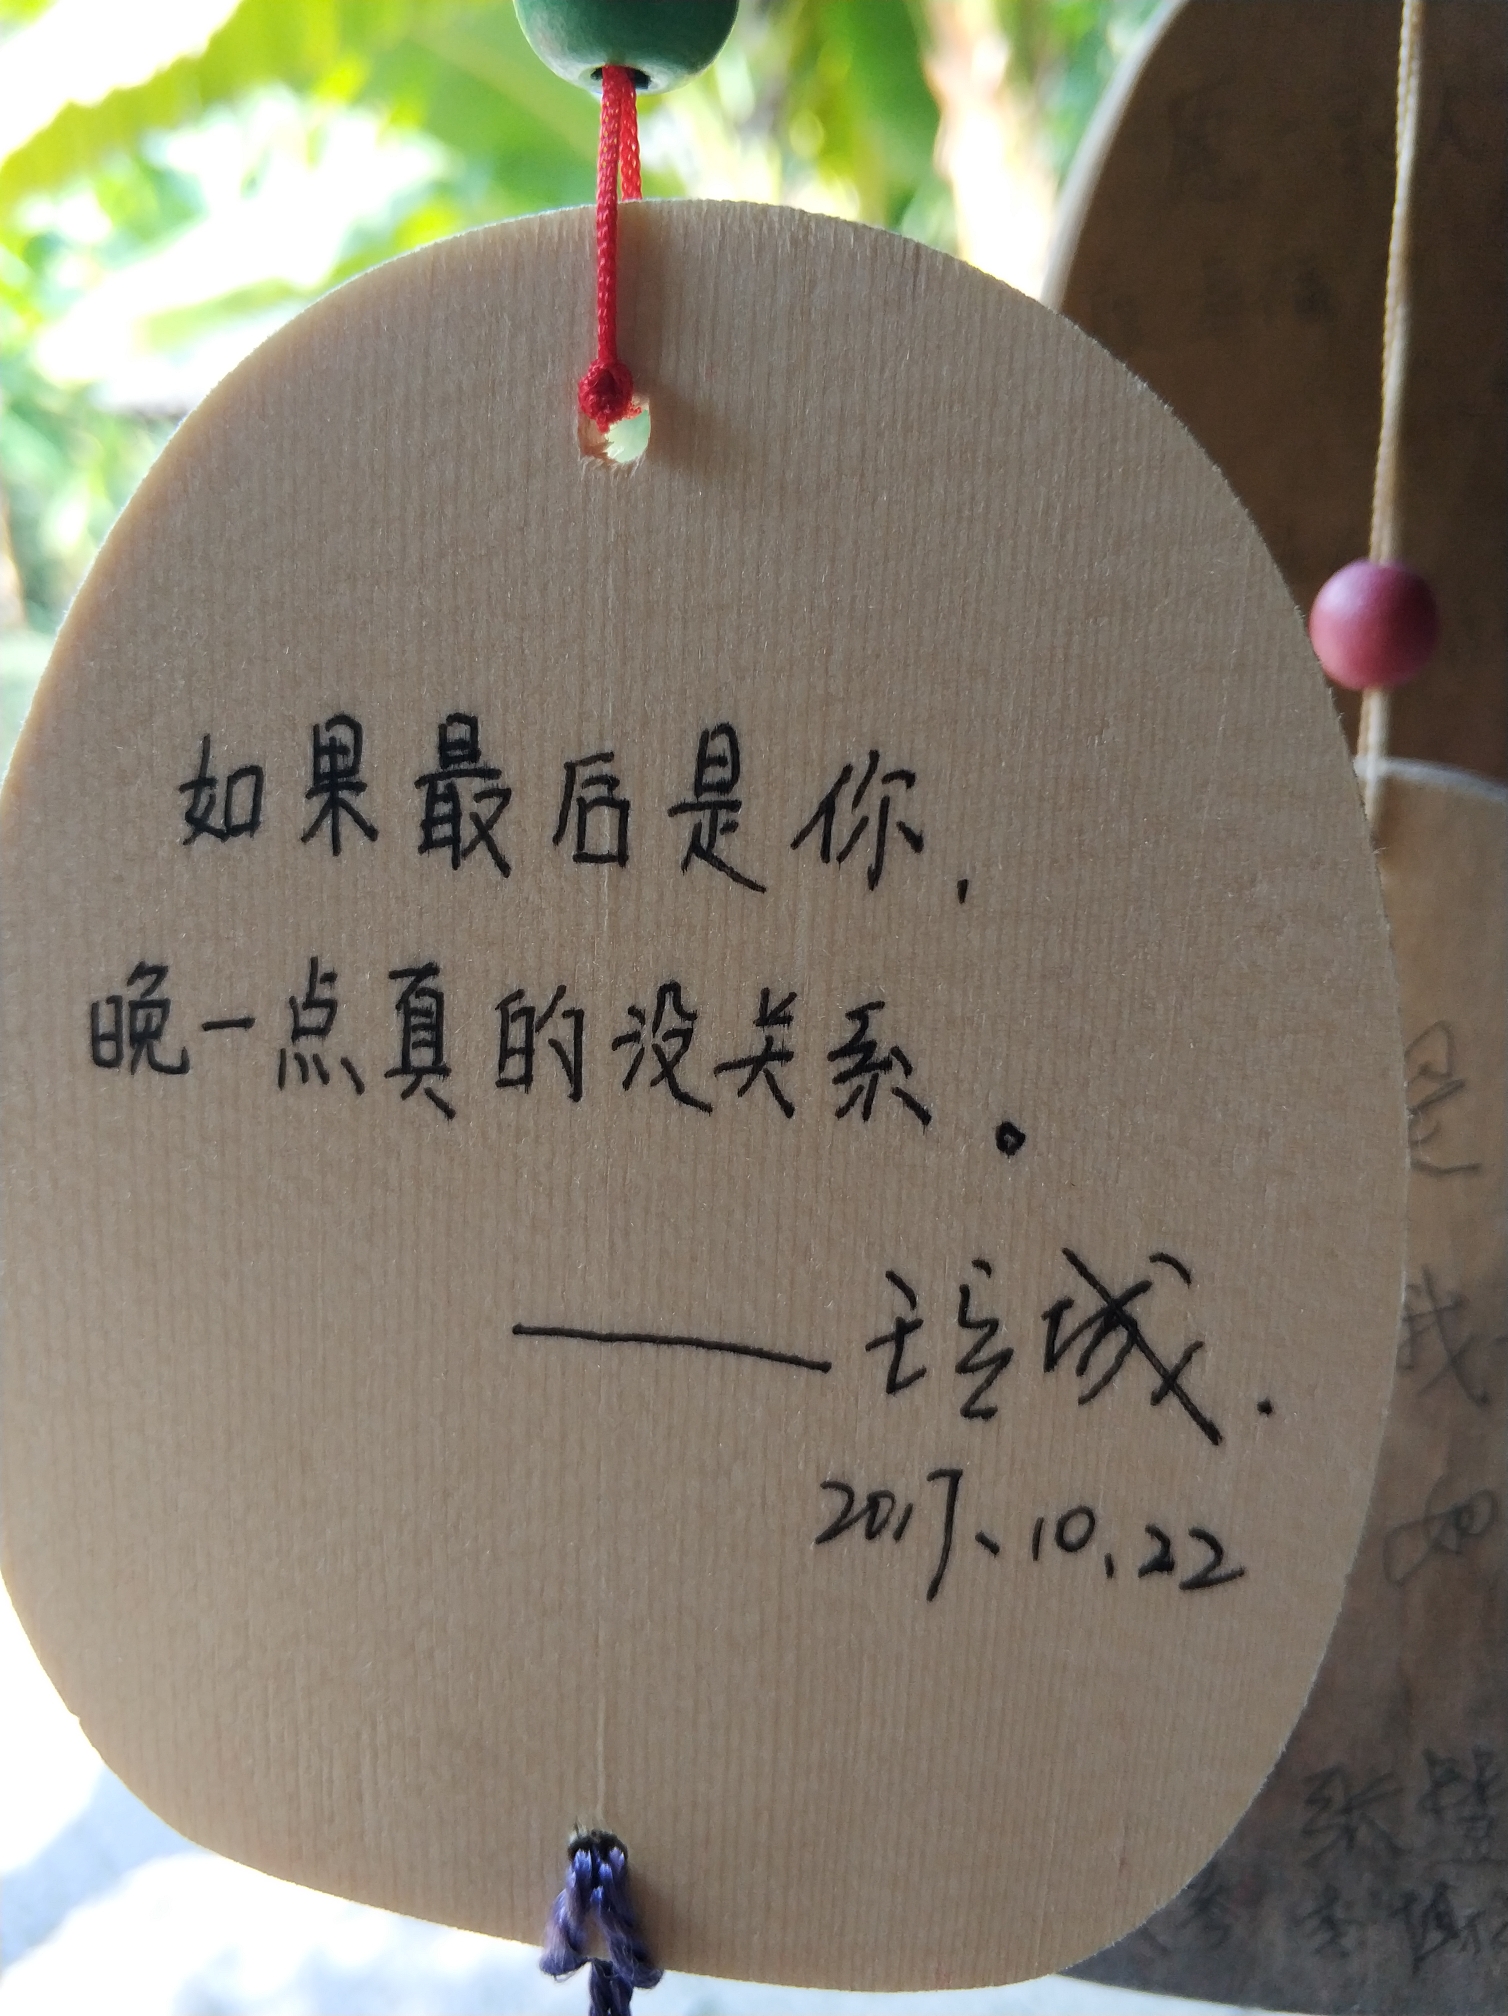 如果最后是你,
晚一点真的没关系。
2017、10、22
我
如
张